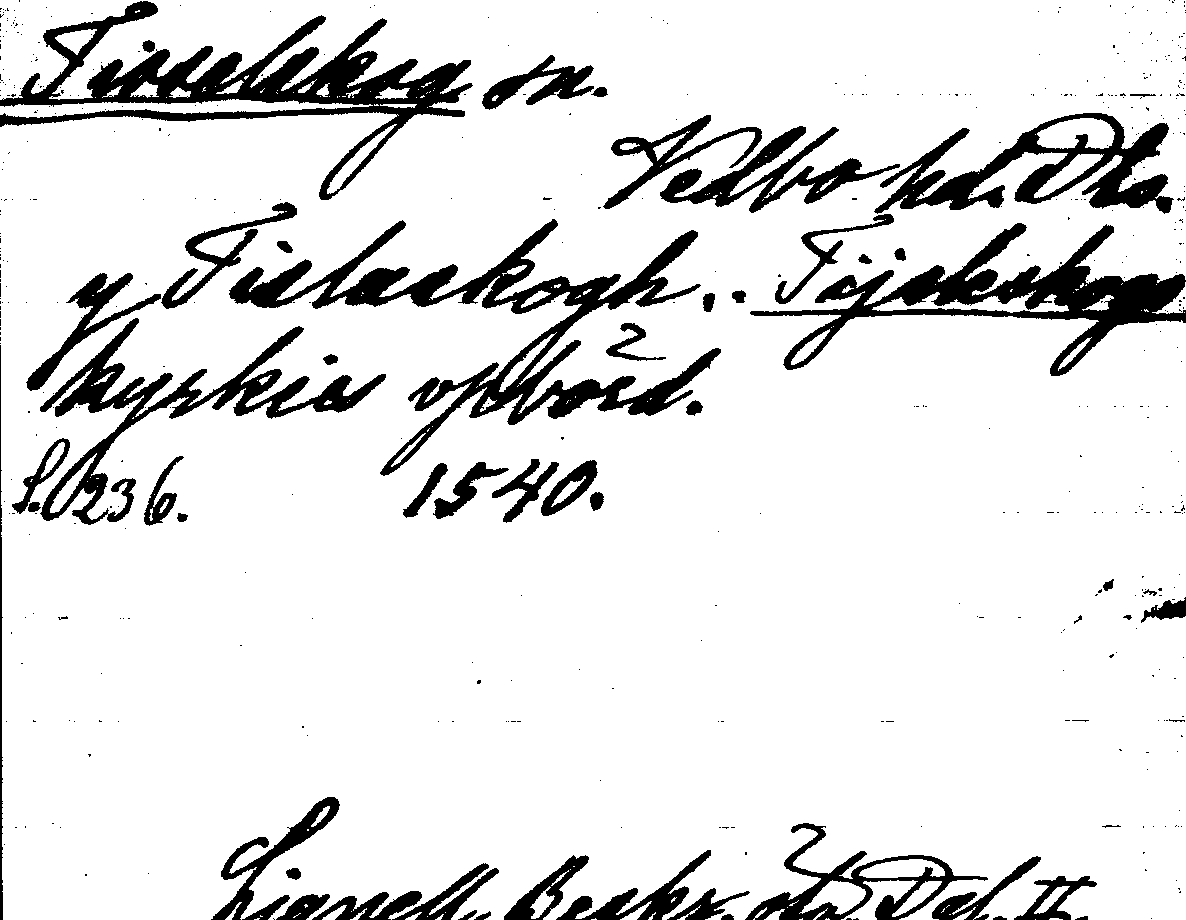 Tisselskog sn.
Vedbo hd. Dls.
y Tislaskogh... Tijsleskogs
kyrkies vpbörd.
S. 236. 1540.
Lignell, Beskr. öfv. Dal. II